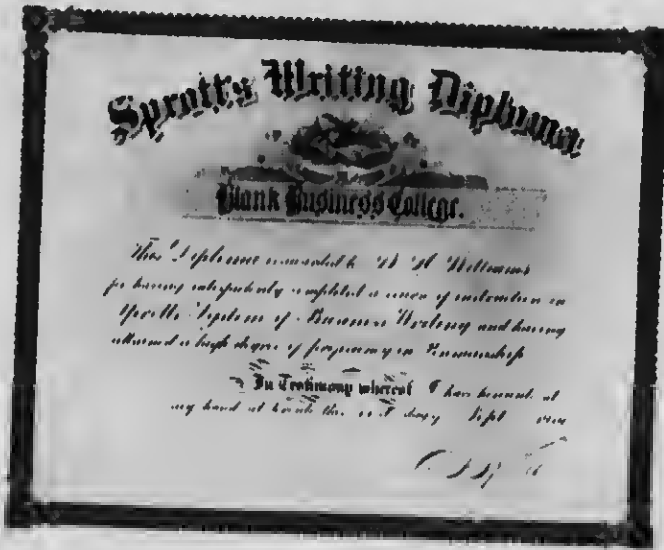 Spratt's Writing Diploma
Blank Business College.
This Diploma awarded to W H Williams
for having completed a course of instruction in
System of Business Writing and having
attained a high degree of in Penmanship
In Testimony whereof I have hereunto set
my hand at this day Sept